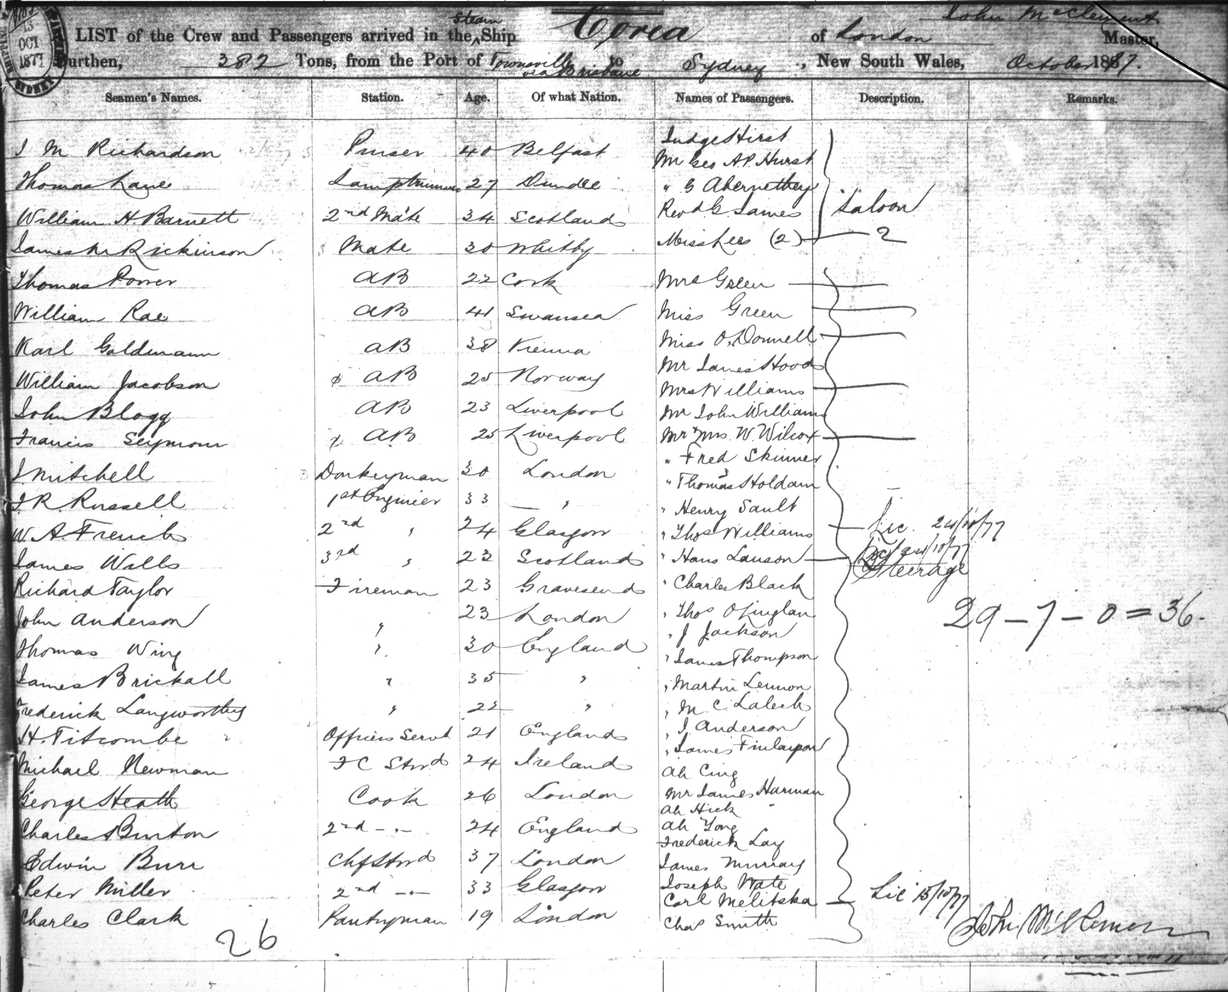 13
OCT
1877
SYDNEY
LIST of the Crew and Passengers arrived in the Steam Ship Corea of London John McClement Master,
Burthen, 382 Tons, from the Port of Townsville via Brisbane to Sydney, New South Wales, October 1877.
Seamen's Names. Station. Age. Of what Nation. Names of Passengers. Description. Remarks.
Judge Hirst
J M Richardson Purser 40 Belfast Mr Geo A P Hurst
Thomas Lane Lamptrimmer 27 Dundee " G Abernethey
William H. Barnett 2nd Mate 34 Scotland Revd G James Saloon
James M Rickinson Mate 30 Whitby Miss Lees (2) 2
Thomas Power AB 22 Cork Mrs Green
William Rae AB 41 Swansea Miss Green
Karl Goldmann AB 38 Vienna Miss O'Donnell
Mr James Hood
William Jacobson AB 25 Norway Mrs Williams
John Blogg AB 23 Liverpool Mr John William
Francis Seymour AB 25 Liverpool Mr & Mrs W. Wilcox
" Fred Skinner
J Mitchell Donkeyman 30 London " Thomas Holdam
J. R. Russell 1st Engineer 33 " " Henry Sault
W. A. French 2nd " 24 Glasgow " Thos Williams Lic. 24/10/77
James Wills 3rd " 23 Scotland " Hans Lauson
Steerage
Richard Taylor Fireman 23 Gravesend " Charles Black
John Anderson " 23 London " Thos
29 – 7 – 0 = 36.
" J Jackson
Thomas Wing " 30 England " James Thompson
James Brickall " 35 " " Martin Lennon
Frederick Langworthy " 22 " " M C
" J Anderson
H. Titcombe Officers Servt 21 England " James Finlayson
Michael Newman F C Stwd 24 Ireland Ah Cing
George Heath Cook 26 London Mr James Harman
Ah Hick "
Charles Burton 2nd - " - 24 England Ah Yong
Frederick Lay
Edwin Burr Chf Stwd 37 London James Murray
Peter Miller 2nd - " - 33 Glasgow Joseph Wate
Carl Melitska Lic 15/10/77
Charles Clark Pantryman 19 London Chas Smith
26
John McClement